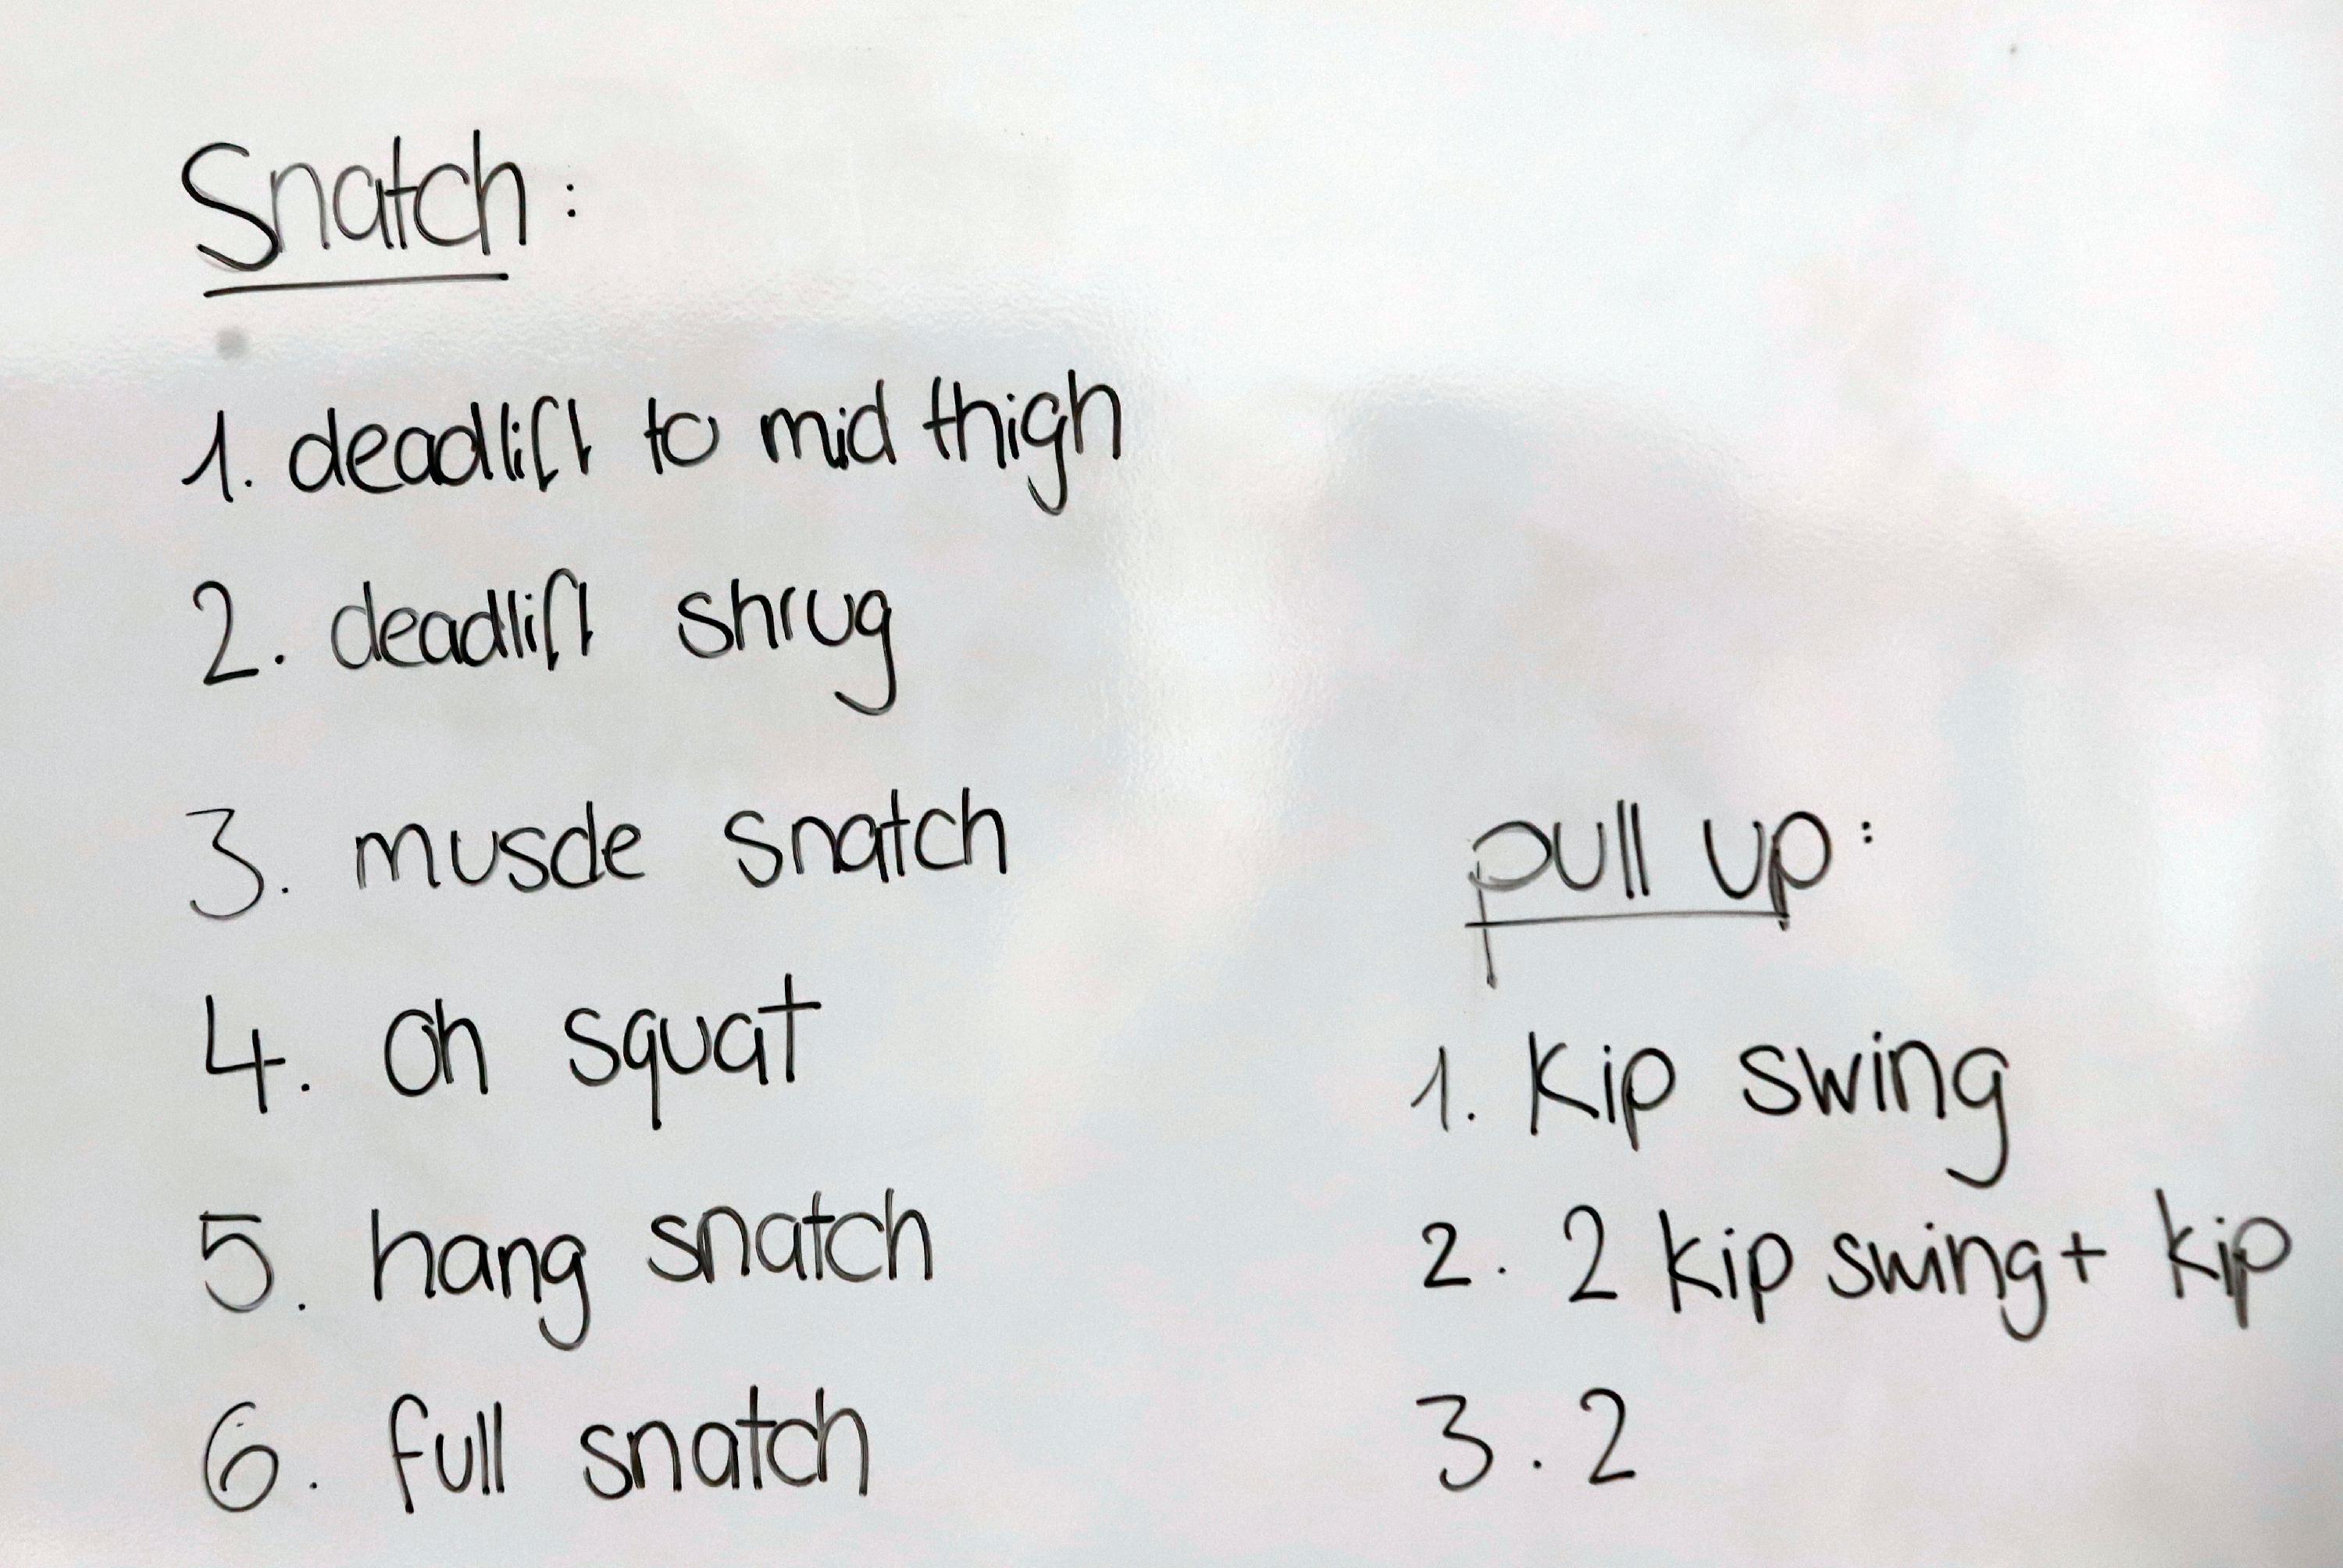 Snatch:
1. deadlift to mid thigh
2. deadlift shrug
3. muscle snatch
4. oh squat
5. hang snatch
6. full snatch
pull up:
1. Kip swing
2. 2 kip swing + kip
3. 2